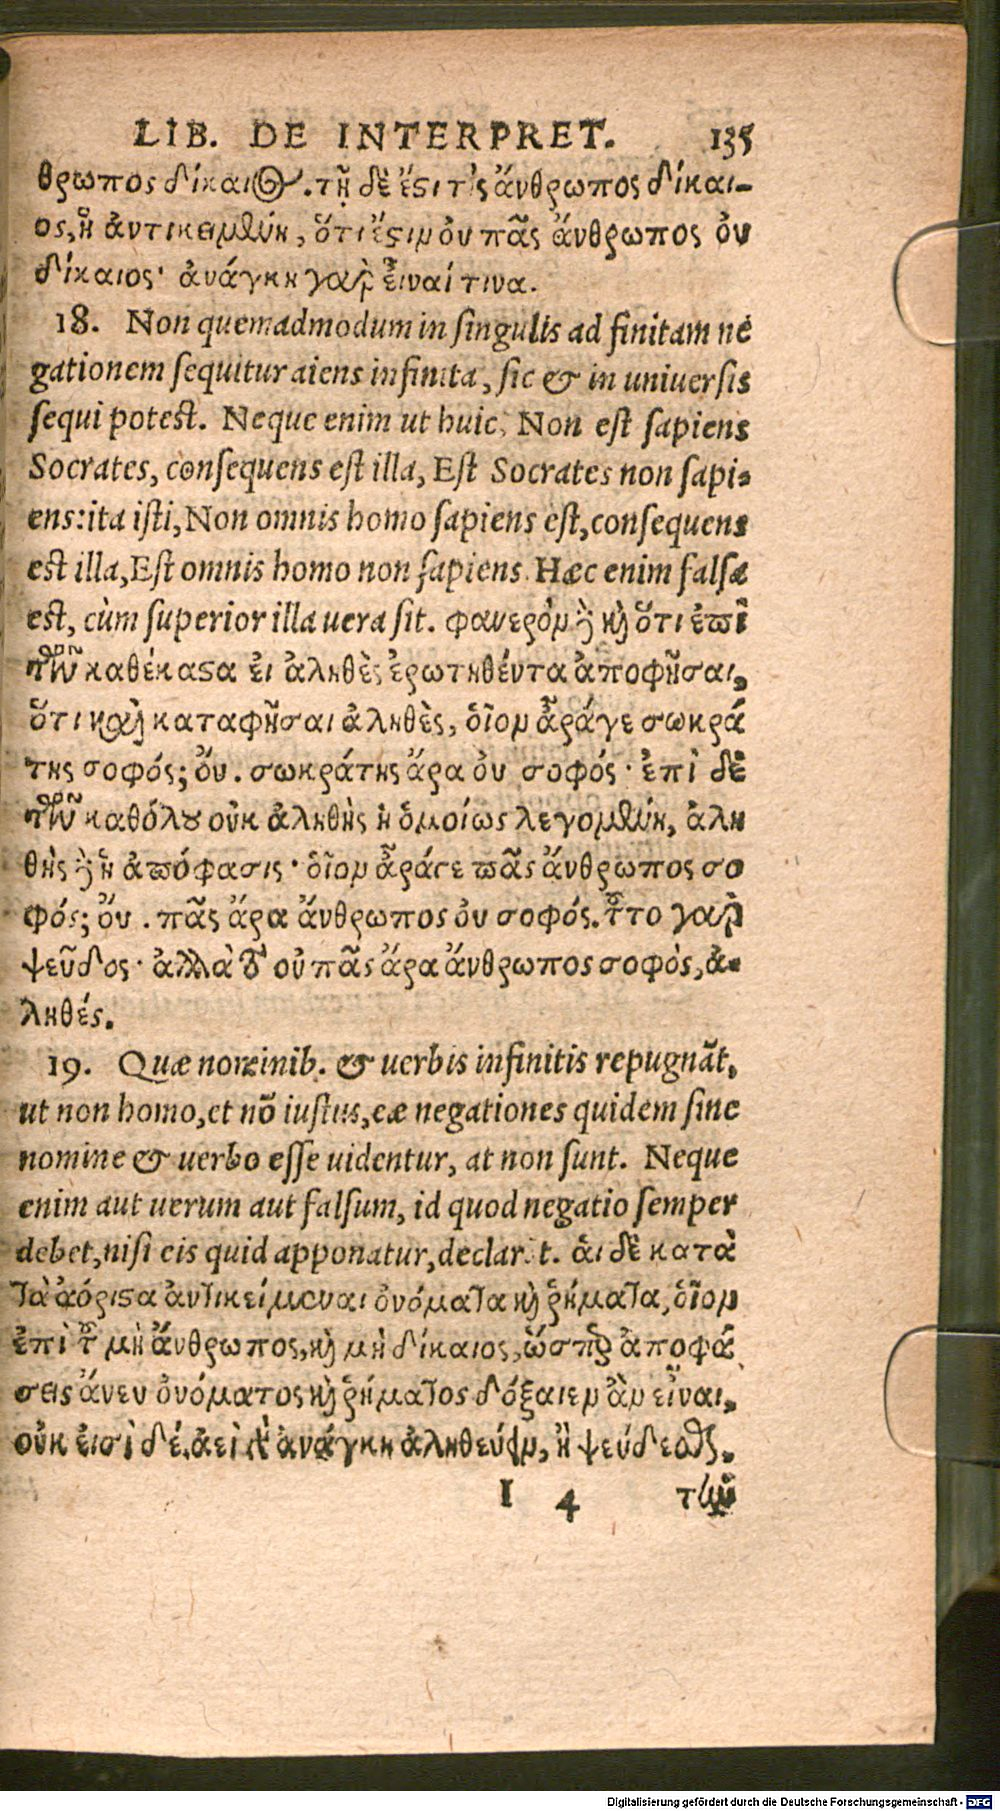 LIB. DE INTERPRET. 135
θρωπος δίκαιος. τῇ δὲ ἔστι τὶς ἄνθρωπος δίκαι-
ος, ἡ ἀντικειμένη, ὅτι ἔστιν οὐ πᾶς ἄνθρωπος οὐ
δίκαιος· ἀνάγκη γὰρ εἶναί τινα.
18. Non quemadmodum in singulis ad finitam ne
gationem sequitur aiens infinita, sic & in uniuersis
sequi potest. Neque enim ut huic, Non est sapiens
Socrates, consequens est illa, Est Socrates non sapi-
ens: ita isti, Non omnis homo sapiens est, consequens
est illa, Est omnis homo non sapiens. Hæc enim falsa
est, cùm superior illa uera sit. φανερὸν δὲ καὶ ὅτι ἐπὶ
τῶν καθέκαστα εἰ ἀληθὲς ἐρωτηθέντα ἀποφῆσαι,
ὅτι καὶ καταφῆσαι ἀληθὲς, οἷον ἆράγε σωκρά
της σοφός; οὔ. σωκράτης ἄρα οὐ σοφός· ἐπὶ δὲ
τῶν καθόλου οὐκ ἀληθὴς ἡ ὁμοίως λεγομένη, ἀλη
θὴς δὲ ἡ ἀπόφασις· οἷον ἆράγε πᾶς ἄνθρωπος σο
φός; οὔ. πᾶς ἄρα ἄνθρωπος οὐ σοφός. τοῦτο γὰρ
ψεῦδος· ἀλλὰ τὸ οὐ πᾶς ἄρα ἄνθρωπος σοφὸς, ἀ-
ληθές.
19. Quæ nominib. & uerbis infinitis repugnãt,
ut non homo, et nõ iustus, eæ negationes quidem sine
nomine & uerbo esse uidentur, at non sunt. Neque
enim aut uerum aut falsum, id quod negatio semper
debet, nisi eis quid apponatur, declarat. αἱ δὲ κατὰ
τὰ ἀόριστα ἀντικείμεναι ὀνόματα καὶ ῥήματα, οἷον
ἐπὶ τοῦ μὴ ἄνθρωπος, καὶ μὴ δίκαιος, ὥσπερ ἀποφά
σεις ἄνευ ὀνόματος καὶ ῥήματος δόξαιεν ἂν εἶναι,
οὐκ εἰσὶ δέ. ἀεὶ γὰρ ἀνάγκη ἀληθεύειν, ἢ ψεύδεσθαι.
I 4 τὴν